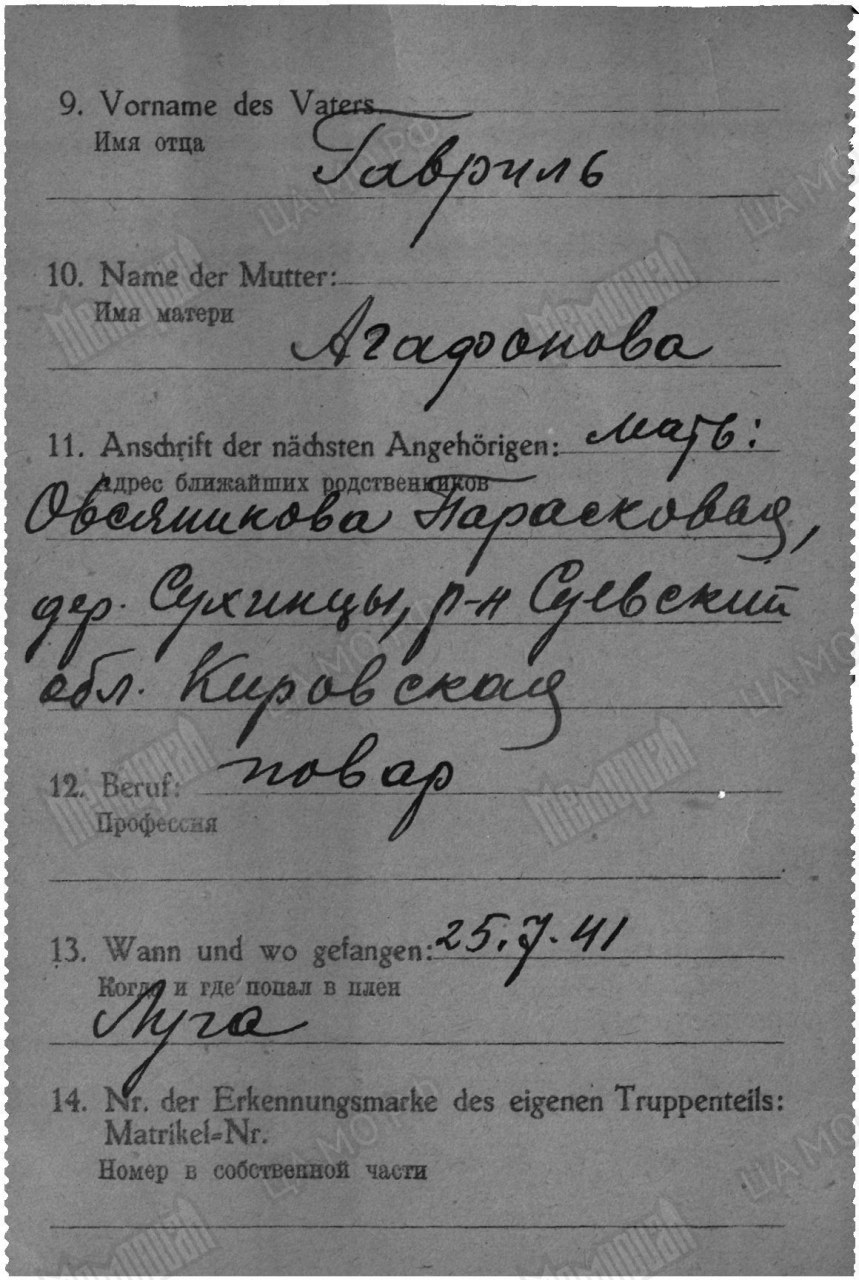 9. Vorname des Vaters
Имя отца
Гавриль
10. Name der Mutter:
Имя матери
Агафонова
11. Anschrift der nächsten Angehörigen: мать:
Адрес ближайших родственников
Овсяникова Парасковая,
дер. Сухинцы, р-н Суевский
обл. Кировская
12. Beruf: повар
Профессия
13. Wann und wo gefangen: 25.7.41
Когда и где попал в плен
Луга
14. Nr. der Erkennungsmarke des eigenen Truppenteils:
Matrikel-Nr.
Номер в собственной части
Мемориал
ЦА МО РФ